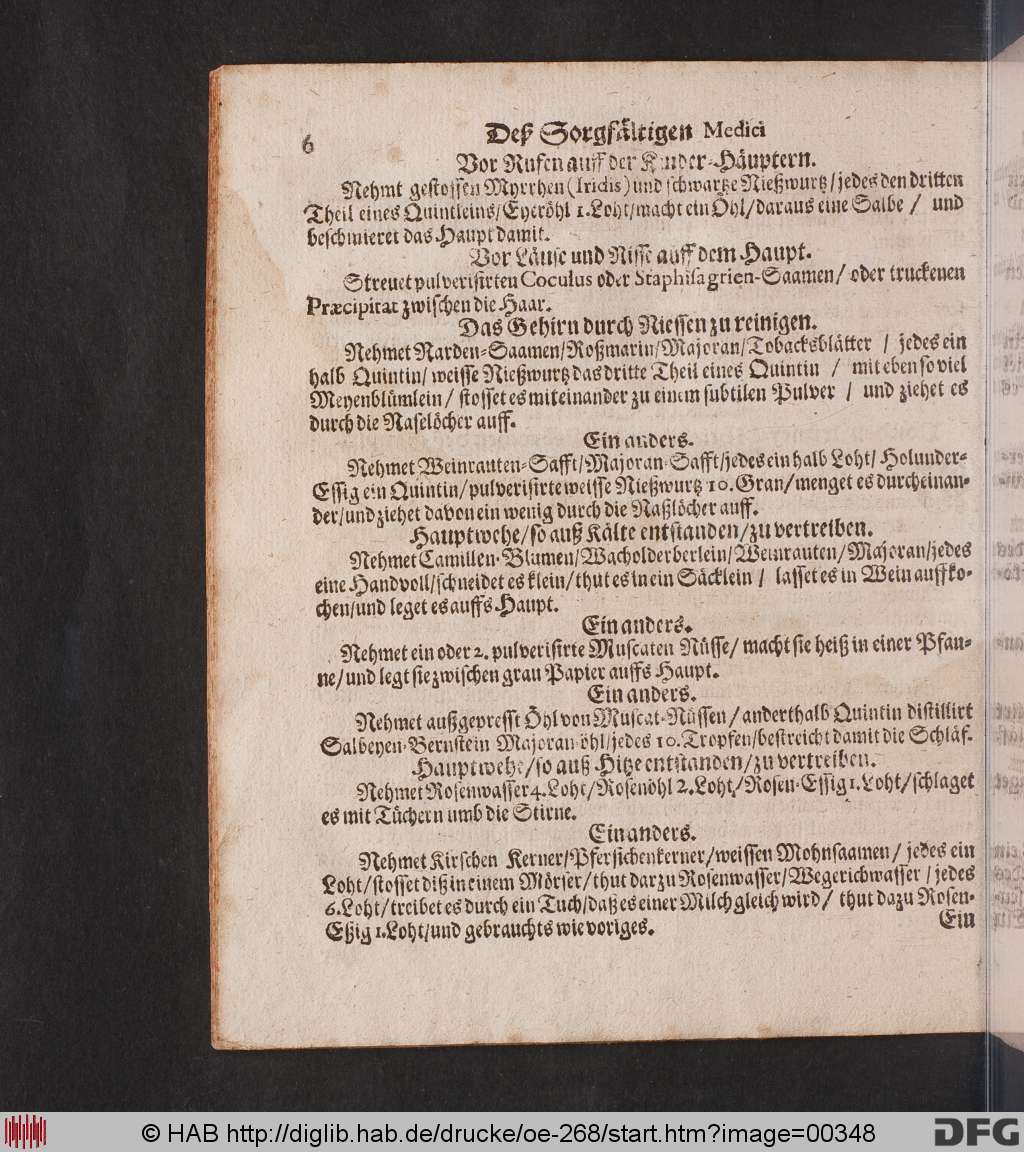 6
Deß Sorgfältigen Medici
Vor Rufen auff der Kinder-Häuptern.
Nehmt gestossen Myrrhen (Iridis) und schwartze Nießwurtz/ jedes den dritten
Theil eines Quintleins/ Eyeröhl 1. Loht/ macht ein Öhl/ daraus eine Salbe / und
beschmieret das Haupt damit.
Vor Läuse und Nisse auff dem Haupt.
Streuet pulverisirten Coculus oder Staphisagrien-Saamen/ oder truckenen
Præcipitat zwischen die Haar.
Das Gehirn durch Niessen zu reinigen.
Nehmet Narden-Saamen/ Roßmarin/ Majoran/ Tobacksblätter / jedes ein
halb Quintin/ weisse Nießwurtz das dritte Theil eines Quintin / mit eben so viel
Meyenblümlein/ stosset es miteinander zu einem subtilen Pulver / und ziehet es
durch die Naselöcher auff.
Ein anders.
Nehmet Weinrauten-Safft/ Majoran-Safft/ jedes ein halb Loht/ Holunder-
Essig ein Quintin/ pulverisirte weisse Nießwurtz 10. Gran/ menget es durcheinan-
der/ und ziehet davon ein wenig durch die Naßlöcher auff.
Hauptwehe/ so auß Kälte entstanden/ zu vertreiben.
Nehmet Camillen-Blumen/ Wacholderberlein/ Weinrauten/ Majoran/ jedes
eine Handvoll/ schneidet es klein/ thut es in ein Säcklein / lasset es in Wein auffko-
chen/ und leget es auffs Haupt.
Ein anders.
Nehmet ein oder 2. pulverisirte Muscaten Nüsse/ macht sie heiß in einer Pfan-
ne/ und legt sie zwischen grau Papier auffs Haupt.
Ein anders.
Nehmet außgepresst Öhl von Muscat-Nüssen/ anderthalb Quintin distillirt
Salbeyen-Bernstein Majoran-öhl/ jedes 10. Tropfen/ bestreicht damit die Schläf.
Hauptwehe/ so auß Hitze entstanden/ zu vertreiben.
Nehmet Rosenwasser 4. Loht/ Rosenöhl 2. Loht/ Rosen-Essig 1. Loht/ schlaget
es mit Tüchern umb die Stirne.
Ein anders.
Nehmet Kirschen Kerner/ Pfersichenkerner/ weissen Mohnsaamen/ jedes ein
Loht/ stosset diß in einem Mörser/ thut darzu Rosenwasser/ Wegerichwasser / jedes
6. Loht/ treibet es durch ein Tuch/ daß es einer Milch gleich wird/ thut dazu Rosen-
Eßig 1. Loht/ und gebrauchts wie voriges.
Ein
© HAB http://diglib.hab.de/drucke/oe-268/start.htm?image=00348
DFG